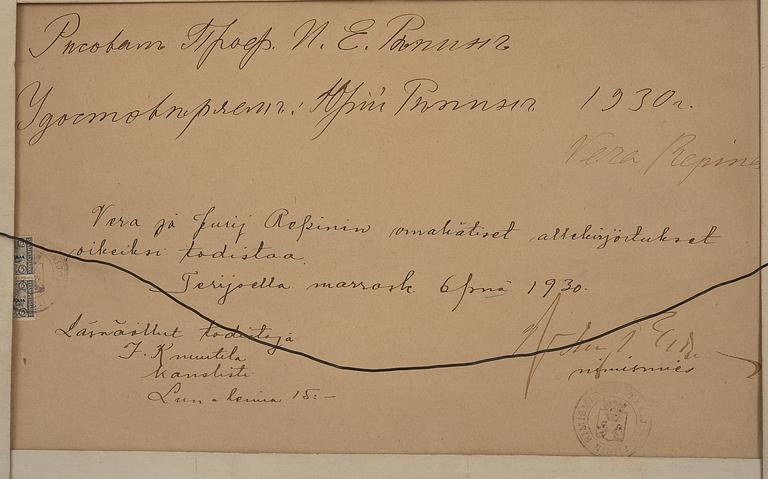 Рисовалъ Проф. И. Е. Рѣпинъ
Удостовѣряемъ: Юрій Рѣпинъ 1930 г.
Vera Repine
Vera ja Jurij Repinin omakätiset allekirjoitukset
oikeiksi todistaa.
Terijoella marrask. 6 pnä 1930.
Läsnäollut todistaja
F. Knuutila
kanslisti
nimismies
Lunakema 15:-